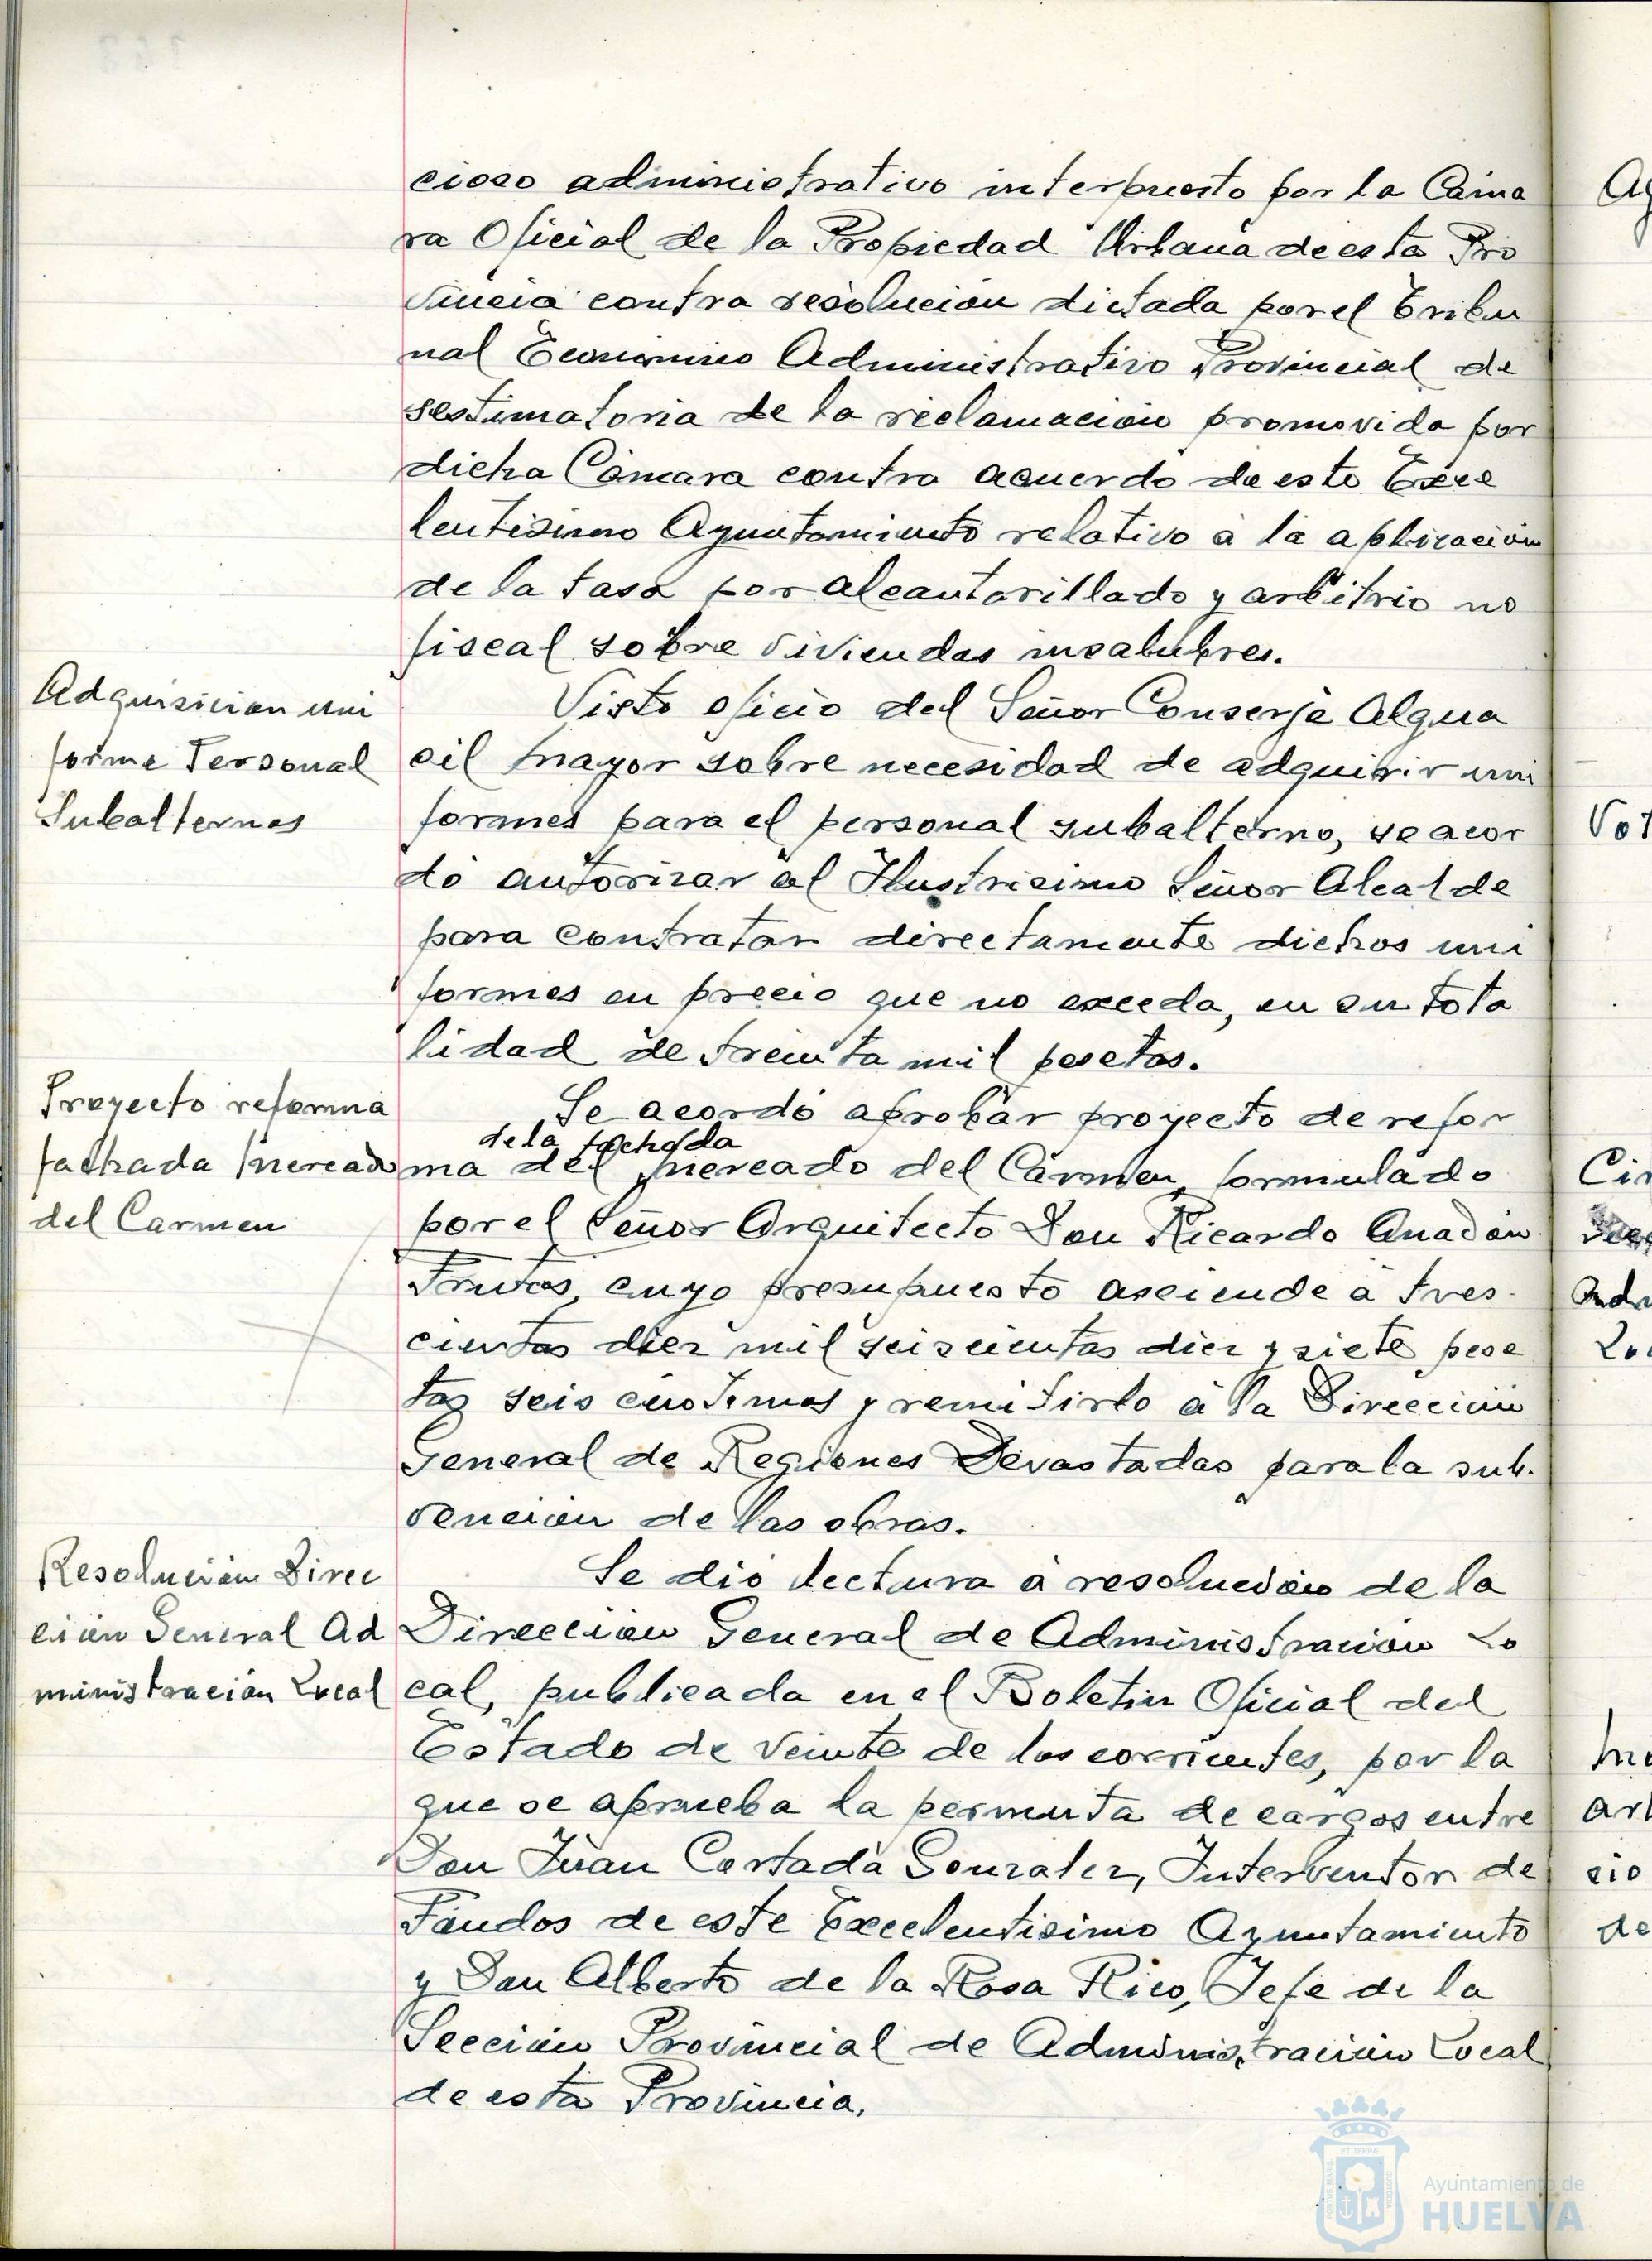 cioso administrativo interpuesto por la Cáma
ra Oficial de la Propiedad Urbana de esta Pro
vincia contra resolución dictada por el Tribu
nal Económico Administrativo Provincial de
sestimatoria de la reclamación promovida por
dicha Cámara contra acuerdo de este Exce
lentísimo Ayuntamiento relativo à la aplicación
de la tasa por alcantarillado y arbitrio no
fiscal sobre viviendas insalubres.
Adquisición uni
forme Personal
Subalternos
Visto oficio del Señor Conserje Algua
cil Mayor sobre necesidad de adquirir uni
formes para el personal subalterno, se acor
dó autorizar al Ilustrísimo Señor Alcalde
para contratar directamente dichos uni
formes en precio que no exceda, en su tota
lidad de treinta mil pesetas.
Proyecto reforma
fachada Mercado
del Carmen
Se acordó aprobar proyecto de refor
de la fachada
ma del Mercado del Carmen, formulado
por el Señor Arquitecto Don Ricardo Anadón
Frutos, cuyo presupuesto asciende à tres-
cientas diez mil seiscientas diez y siete pese
tas seis céntimos y remitirlo à la Dirección
General de Regiones Devastadas para la sub-
vención de las obras.
Resolución Direc
ción General Ad
ministración Local
Se dió lectura à resolución de la
Dirección General de Administración Lo
cal, publicada en el Boletín Oficial del
Estado de veinte de los corrientes, por la
que se aprueba la permuta de cargos entre
Don Juan Cortada Gonzalez, Interventor de
Fondos de este Excelentísimo Ayuntamiento
y Don Alberto de la Rosa Rico, Jefe de la
Sección Provincial de Administración Local
de esta Provincia.
Ayuntamiento de
HUELVA